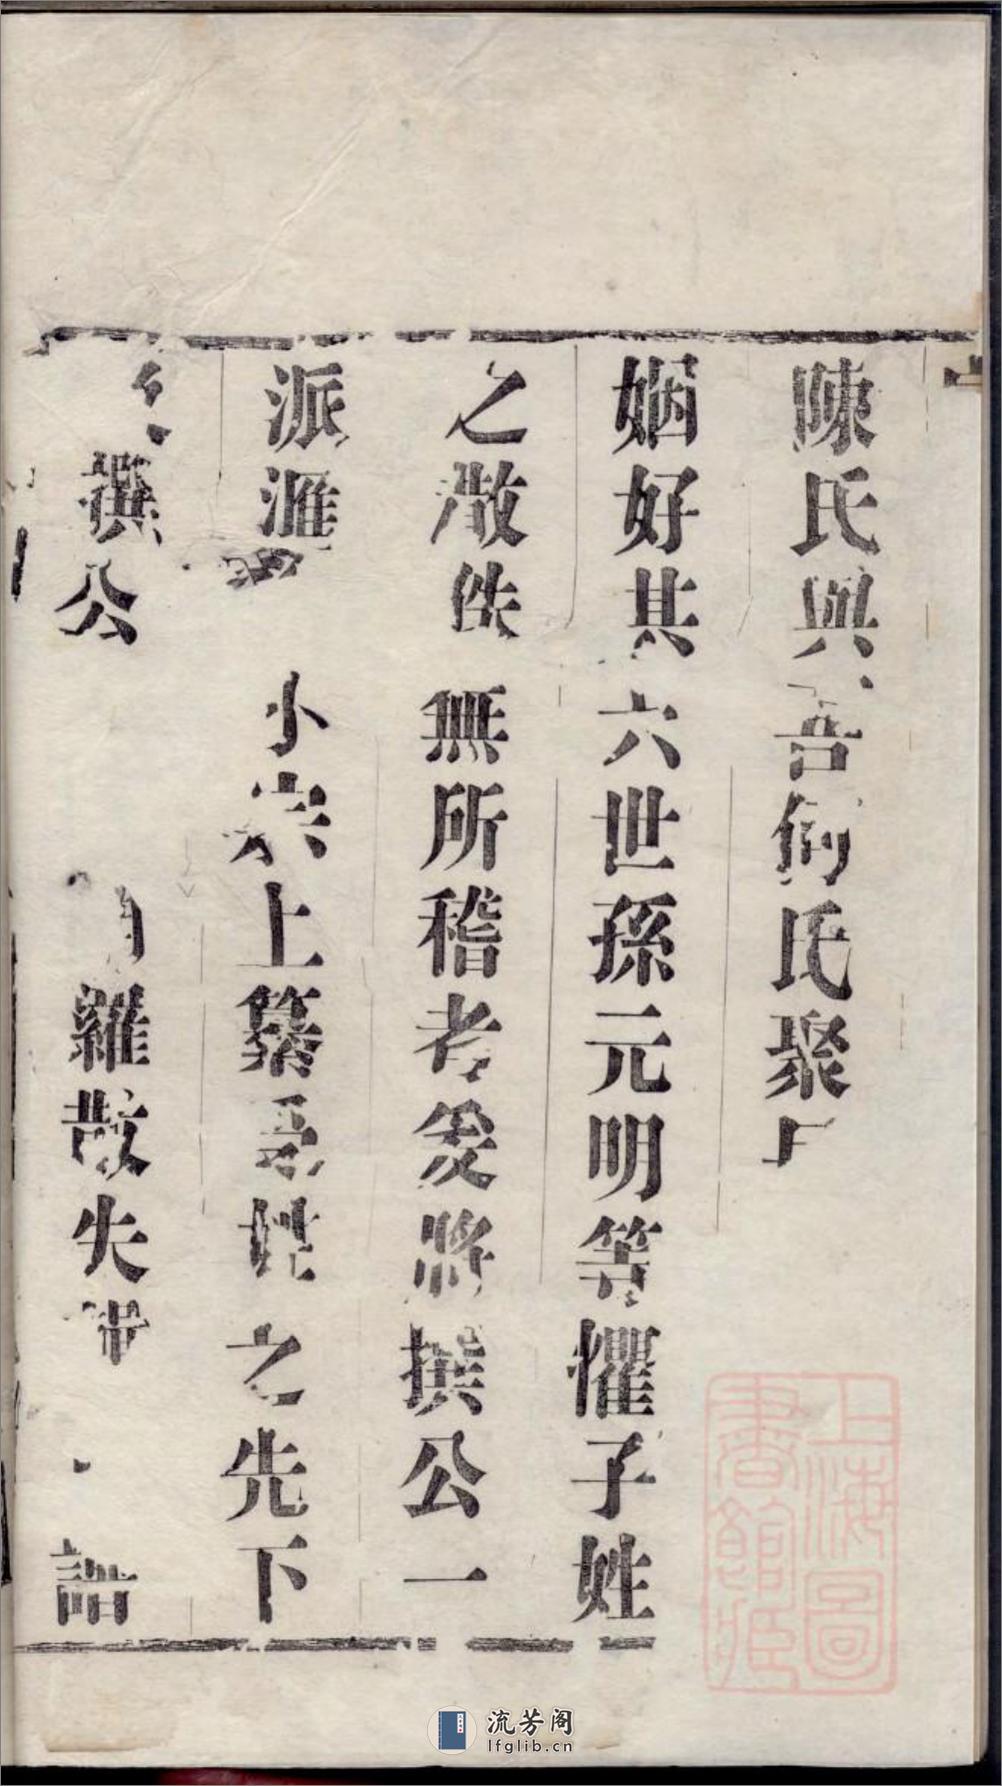 陳氏與吾何氏聚
姻好其六世孫元明等懼子姓
之散佚無所稽考爰將撰公一
派滙 小宗上纂 姓之先下
撰公 羅散失 譜
上海圖書館藏
流芳阁
lfglib.cn